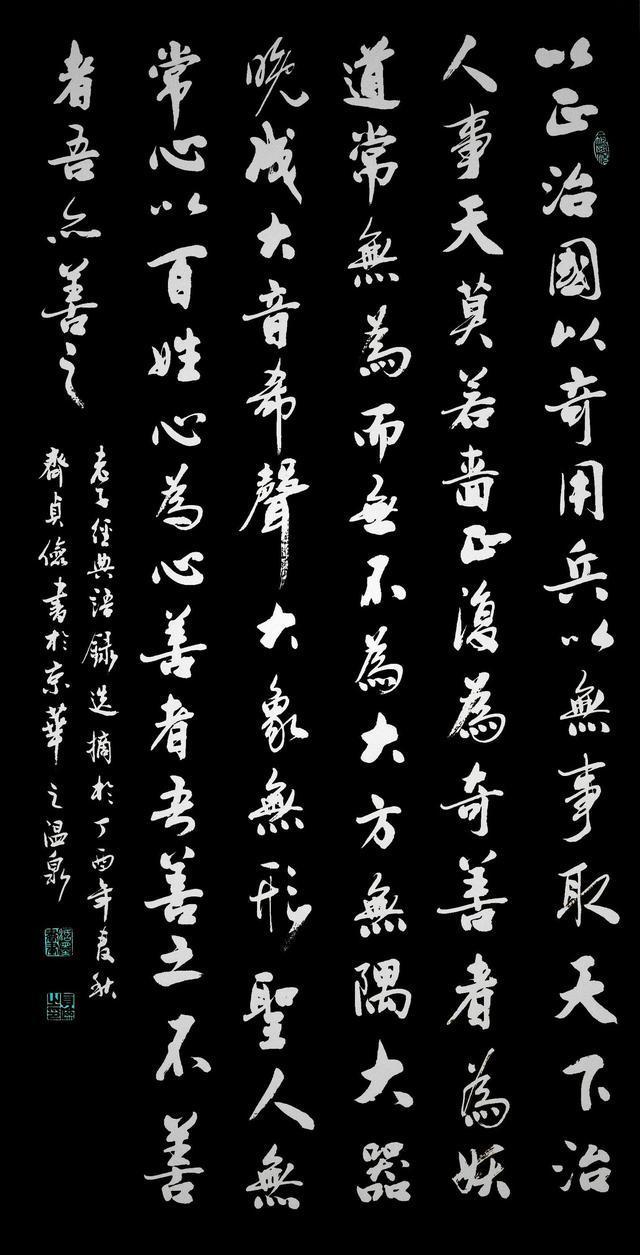 以正治國以奇用兵以無事取天下治
人事天莫若嗇正復為奇善者為妖
道常無為而無不為大方無隅大器
晚成大音希聲大象無形聖人無
常心以百姓心為心善者吾善之不善
者吾亦善之
老子經典語録选摘於丁酉年夏秋
齊貞儉書於京華之温泉